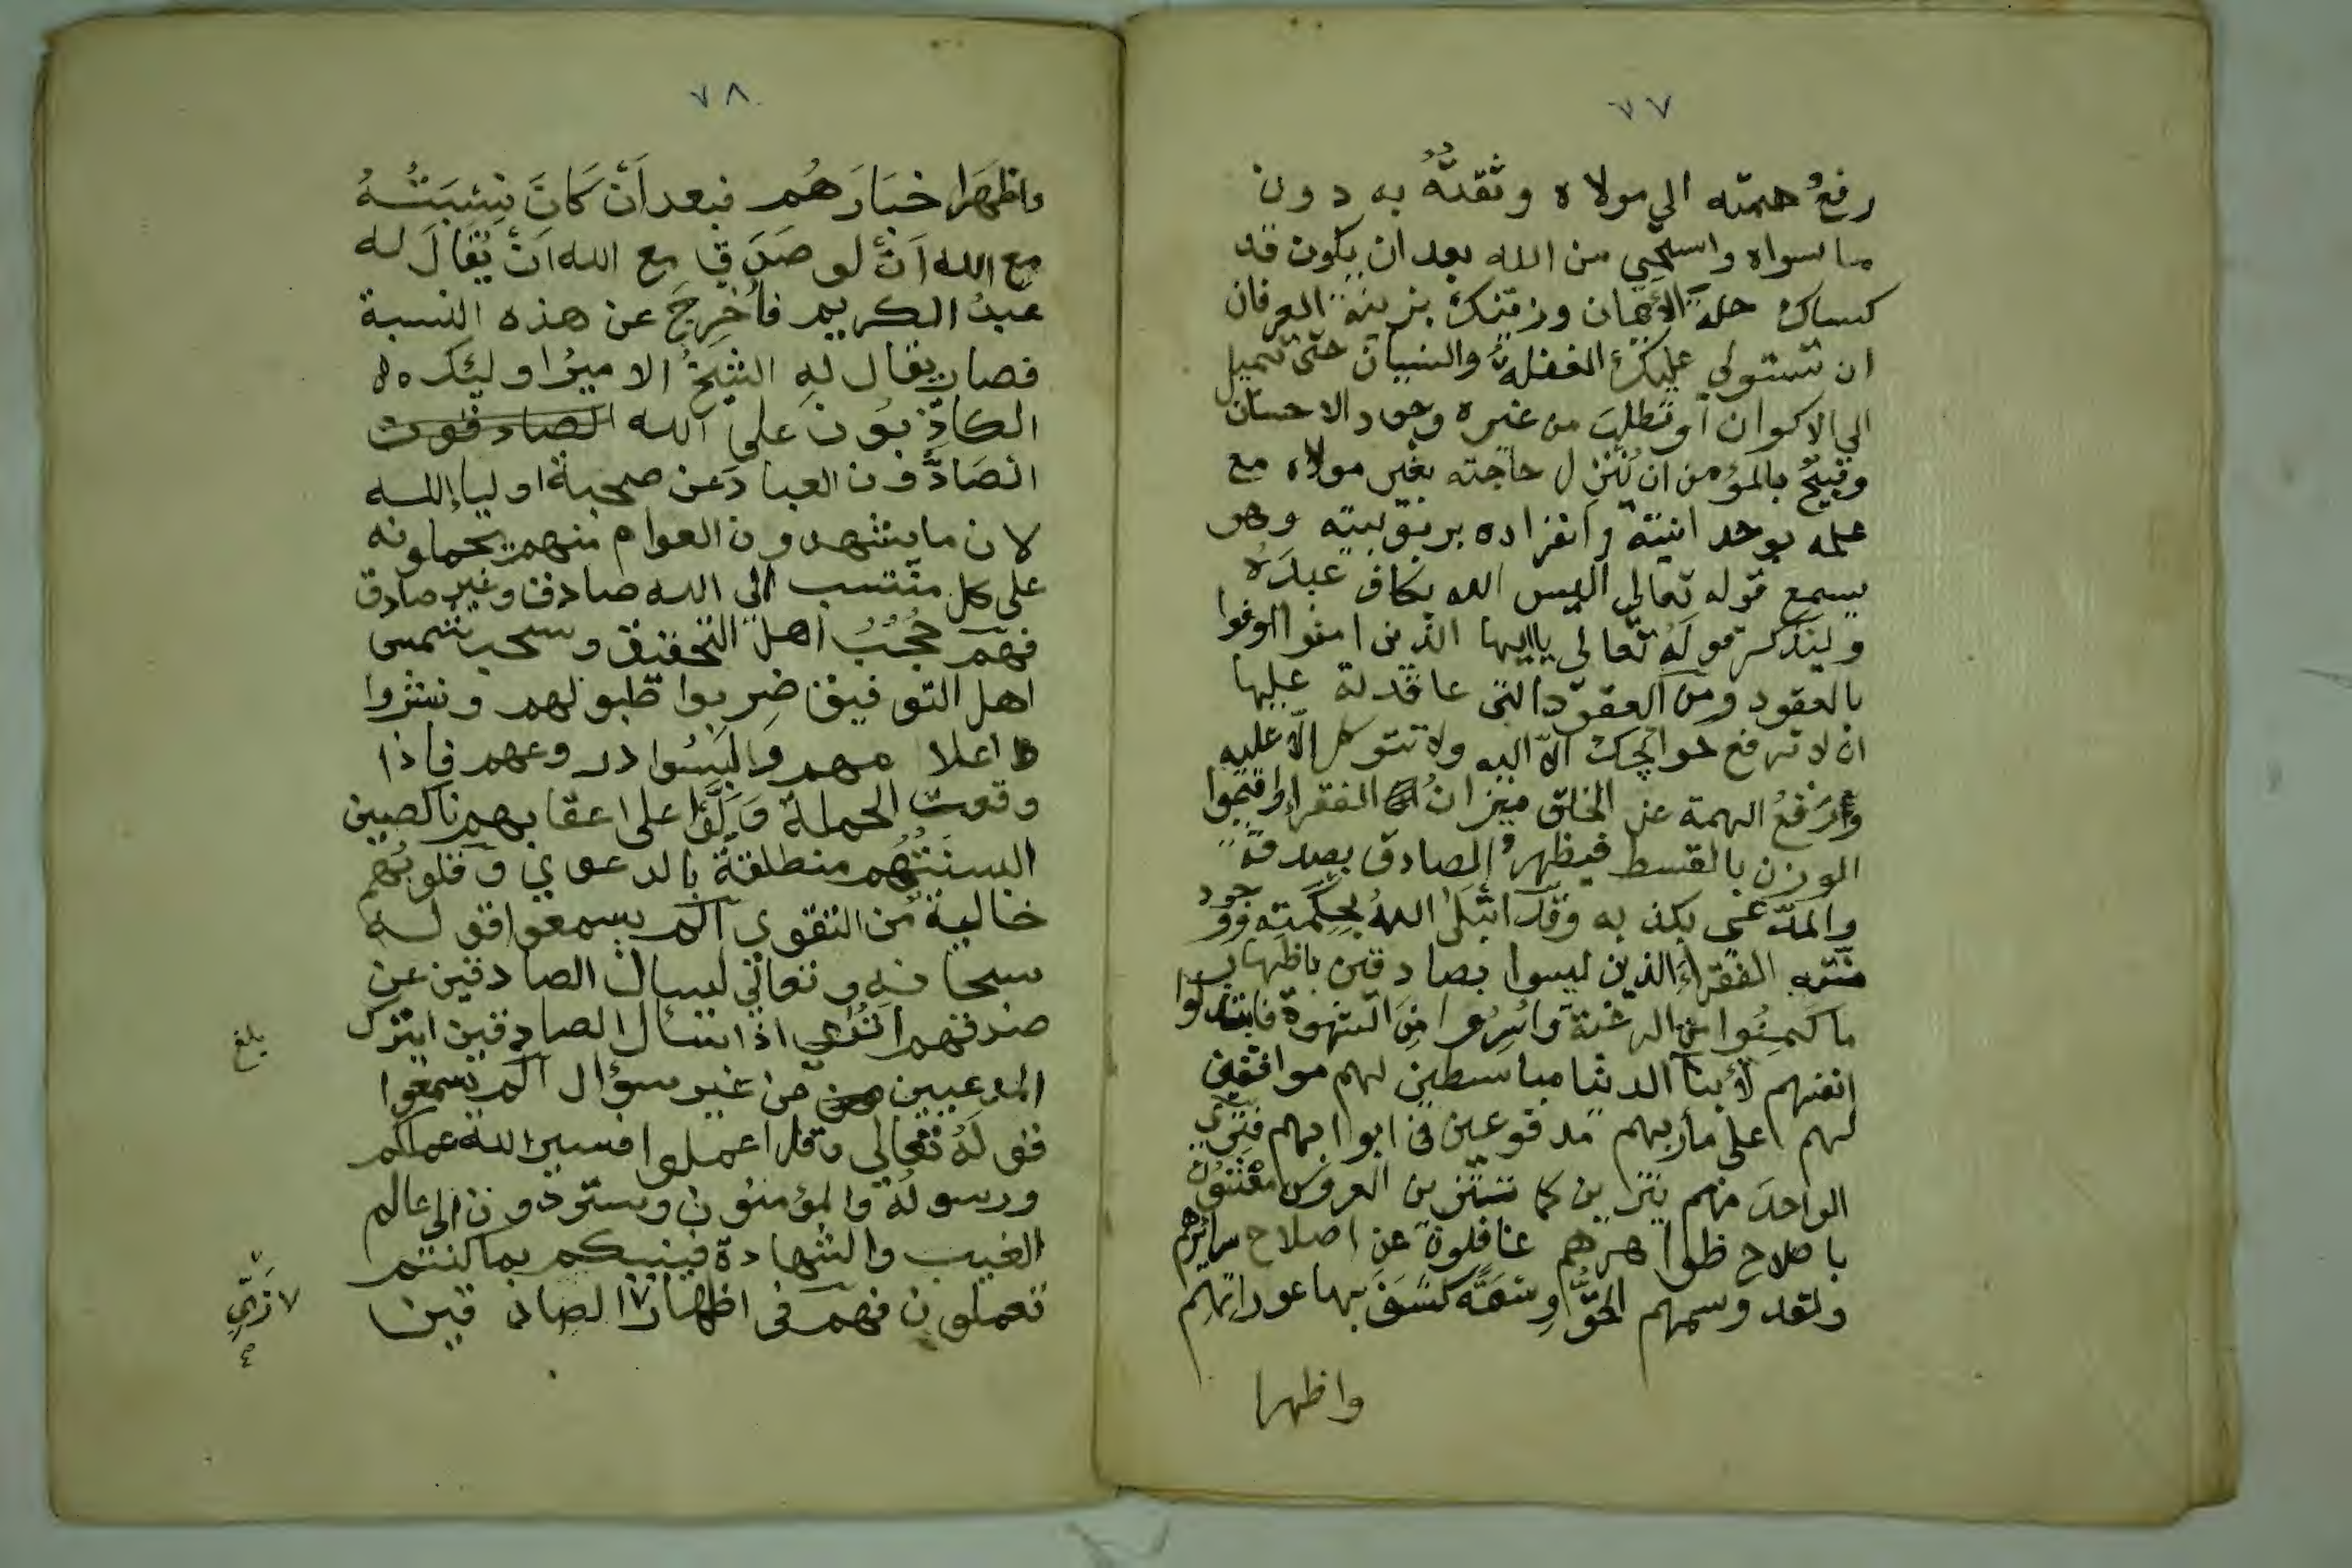 ٧٧
رفعُ همته الي مولاه وثقتُهُ به دون
ما سواه واستحِي من الله بعد ان يكون قد
كساك حلة الأيمان وزينك بزينة العرفان
ان تستولي عليك الغفلةُ والنسيان حتّى تميل
الي الاكوان أو تطلبَ من غيره وجود الاحسان
وقبيحٌ بالمؤمن ان يُنزِل حاجته بغير مولاه مع
علمه بوحدانيته وانفراده بربوبيته وهو
يسمع قوله تعالي اليس الله بكاف عبدَهُ
وليتذكر قولَهُ تعالي ياايها الذين امنوا اوفوا
بالعقود ومن العقود التي عاقدته عليها
ان لا ترفع حوائجك الّا اليه ولا تتوكل الّا عليه
ورَفعُ الهمة عن الخلق ميزانُ الفقراء واقيموا
الوزن بالقسط فيظهر الصادق بصدقه
والمدّعي بكذبه وقد ابتلى اللهُ بحكمته ووجود
منّته الفقراءَ الذين ليسوا بصادقين باظهار
ما كمنُوا من الرغبة واسرُّوا مِنَ الشهوة فابتدلوا
انفسهم لأبنآ الدنيا مباسطين لهم موافقين
لهم على مأربهم مدفوعين في ابوابهم فترى
الواحدَ منهم يتزين كما تتزين العروس مفتنونُ
باصلاح ظواهرهم غافلون عن اصلاح سرائرهم
ولقد وسمهم الحقُّ وِسْمَةً كشَفَ بها عوراتهم
واظهرا
٧٨
واظهَرا خبَارَهُم فبعد اَنْ كَانَ نِسْبَتُهُ
مع الله اَنْ لو صَدَقَ مع الله اَنْ يُقَالَ له
عبدُ الكريم فاُخرِجَ عن هذه النسبة
فصار يقال له الشيخُ الاميرُ اوليئك ه
الكاذِبُون على الله الصادقون
الصَادُّون العبادَ عن صحبة اولياء الله
لان ما يشهدون العوام منهم يحملونه
على كل منتسب الى الله صادق وغير صادق
فهم حُجُبُ اهل التحقيق وسحب شمس
اهل التوفيق ضربوا طبولهم ونشروا
اعلامهم ولَبِسُوا دروعهم فاذا
وقعت الحملة وَلَّوْا على اعقابهم ناكصين
السنَتُهُم منطلقةٌ بالدعوي وقلوبُهم
خالية من التقوي الم يسمعوا قوله
سبحانه وتعالي ليسال الصادقين عن
صدقهم اَتُرَي اذا سال الصادقين ايترك
المدعيين من غير سؤال الم يسمعوا
قولَهُ تعالي وقل اعملوا فسيرا الله عملكم
ورسولُهُ والمؤمنون وستردون الى عالم
الغيب والشهادة فينبيكم بما كنتم
تعملون فهم في اظهار الصادقين
بلغ